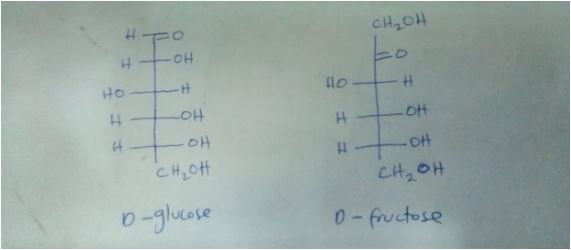 CH₂OH
H =O
H OH
=O
HO H
HO H
H OH
H OH
H OH
H OH
CH₂OH
CH₂OH
D-glucose
D-fructose